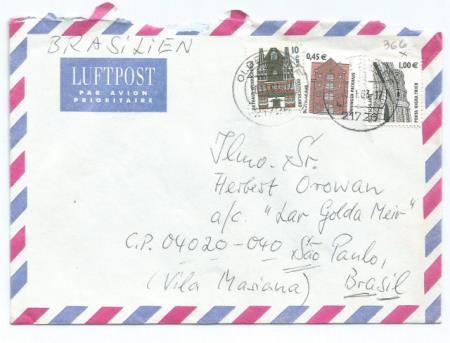 366
BRASILIEN
LUFTPOST
PAR AVION
PRIORITAIRE
10
0,45 €
1,00 €
PORTA NIGRA TRIER
21726
Ilmo. Sr.
Herbert Orowan
a/c. "Lar Golda Meir"
C.P. 04020-040 São Paulo,
(Vila Mariana) Brasil